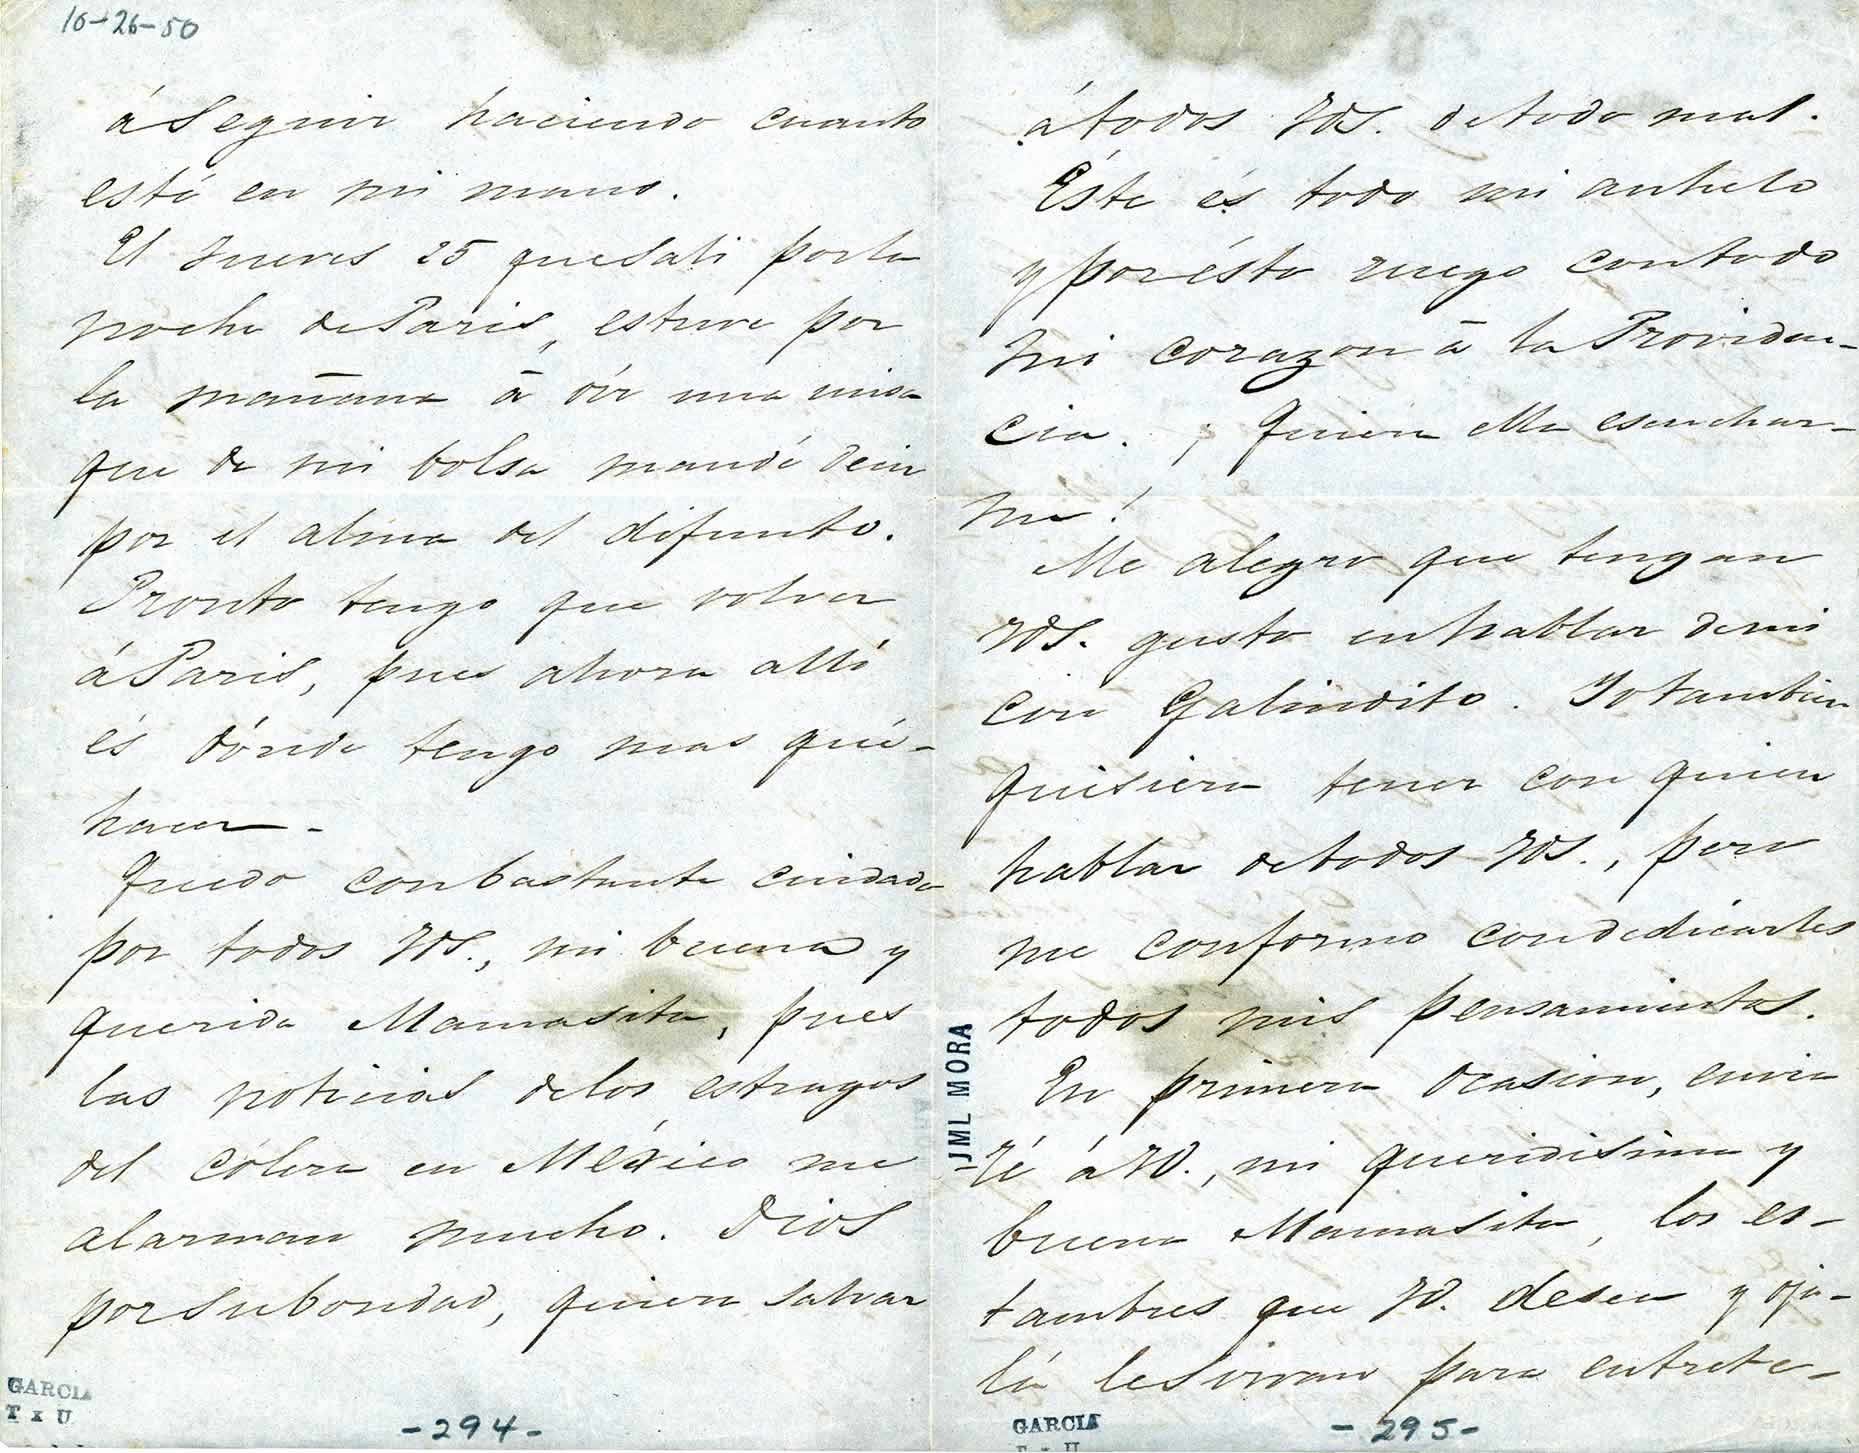 10-26-50
á Seguir haciendo cuanto
esté en mi mano.
El Jueves 25 que Salí por la
noche de Paris, estuve por
la mañana á óir una misa
que de mi bolsa mandé decir
por el alma del difunto.
Pronto tengo que volver
á Paris, pues ahora allí
és dónde tengo mas qué-
hacer.
Quedo con bastante cuidado
por todos Vds., mi buena y
querida Mamasita, pues
las noticias de los estragos
del cólera en México me
alarman mucho. Dios
por Su bondad, quiera Salvar
GARCIA
T x U
-294-
á todos Vds. de todo mal.
Éste és todo mi anhelo
y por ésto ruego con todo
mi corazon á la Providen-
cia. ¡Quiera Ella escuchar-
me!
Me alegro que tengan
Vds. gusto en hablar de mi
con Galindito. Yo tambien
quisiera tener con quien
hablar de todos Vds., pero
me conformo con dedicarles
todos mis pensamientos.
En primera ocasion, envia
ré á Vd., mi queridisima y
buena Mamasita, los es-
tambres que Vd. desea y oja-
lá le Sirvan para entrete-
JML MORA
GARCIA
T x U
-295-